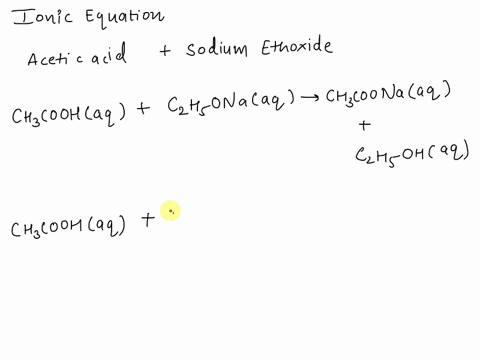 Ionic Equation
Acetic acid + Sodium Ethoxide
CH₃COOH(aq) + C₂H₅ONa(aq) → CH₃COONa(aq)
+
C₂H₅OH(aq)
CH₃COOH(aq) +